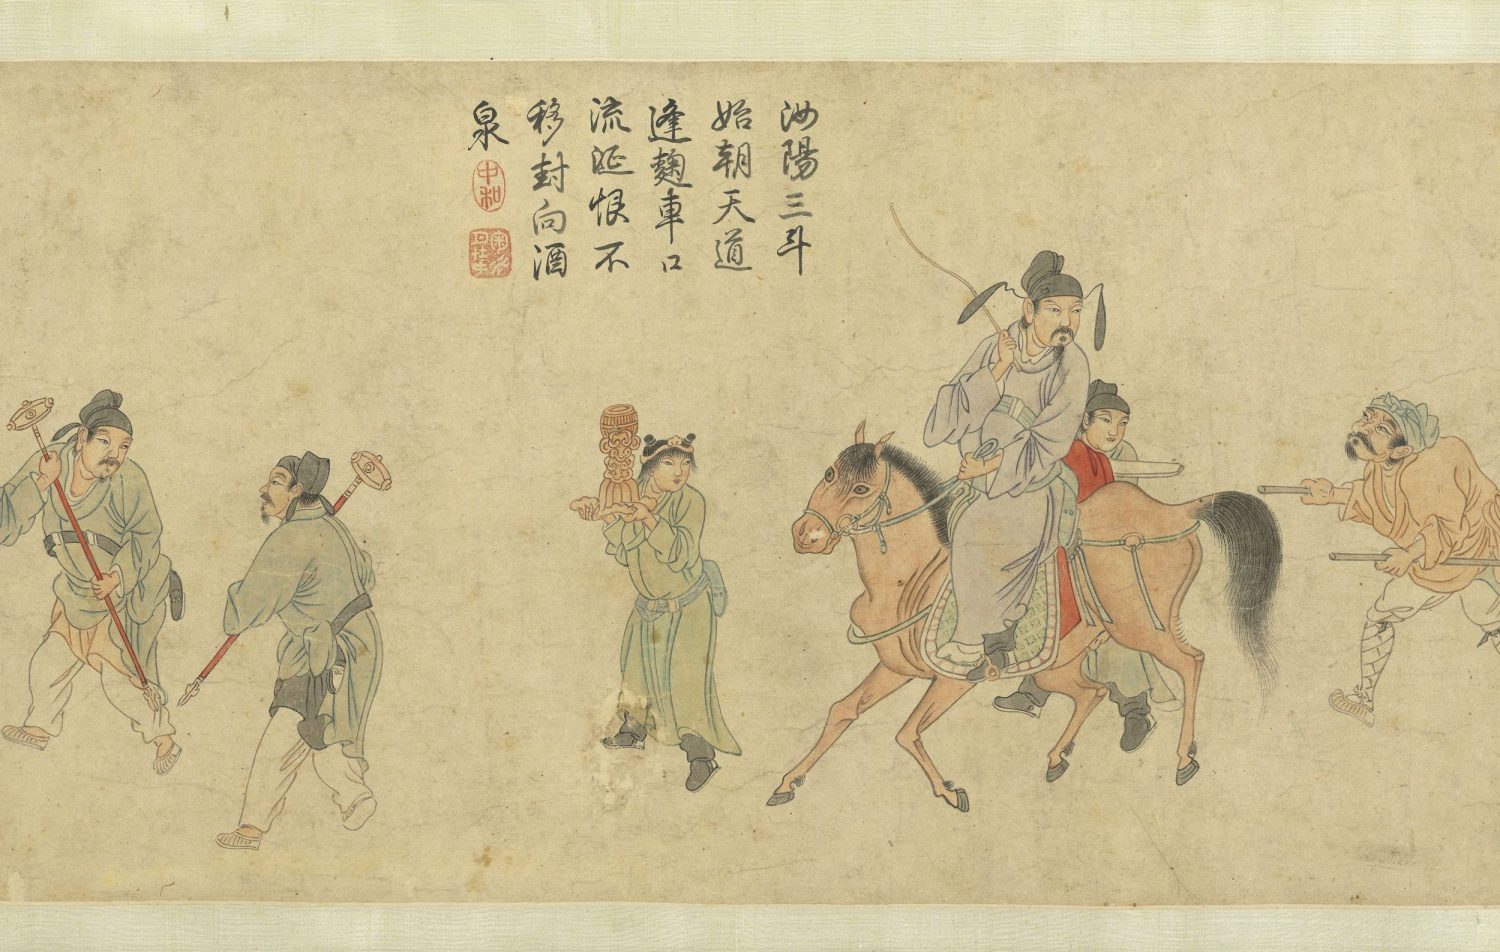 汝陽三斗
始朝天道
逢麴車口
流涎恨不
移封向酒
泉
中和